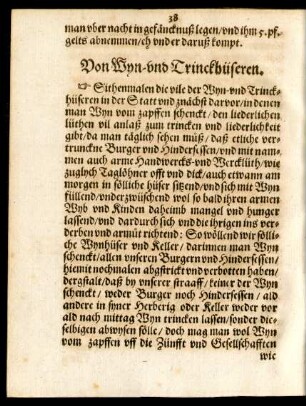 38
man vber nacht in gefäncknuß legen/ vnd ihm 5. pf.
gelts abnemmen/ eh vnd er daruß kompt.
Von Wyn- vnd Trinckhüseren.
☞ Sithenmalen die vile der Wyn- vnd Trinck-
hüseren in der Statt vnd znächst darvor/ in denen
man Wyn vom zapffen schenckt/ den liederlichen
lüthen vil anlaß zum trincken vnd liederlichkeit
gibt/ da man täglich sehen müß/ daß etliche ver-
trunckne Burger vnd Hindersessen/ vnd mit nam-
men auch arme Handwercks- vnd Werckläth/ wie
zuglych Taglöhner offt vnd dick/ auch etwann am
morgen in sölliche hüser sitzend/ vnd sich mit Wyn
füllend/ vnderzwüschend wol so bald ihren armen
Wyb vnd Kinden daheimb mangel vnd hunger
lassend/ vnd dardurch sich vnd die ihrigen ins ver-
derben vnd armüt richtend: So wöllend wir sölli-
che Wynhüser vnd Keller/ darinnen man Wyn
schenckt/ allen vnseren Burgern vnd Hindersessen/
hiemit nochmalen abgstrickt vnd verbotten haben/
dergstalt/ daß by vnserer straaff/ keiner der Wyn
schenckt/ weder Burger noch Hindersessen/ ald
andere in syner Herberig oder Keller weder vor
ald nach mittag Wyn trincken lassen/ sonder die-
selbigen abwysen sölle/ doch mag man wol Wyn
vom zapffen vff die Zünfft vnd Gesellschafften
wie